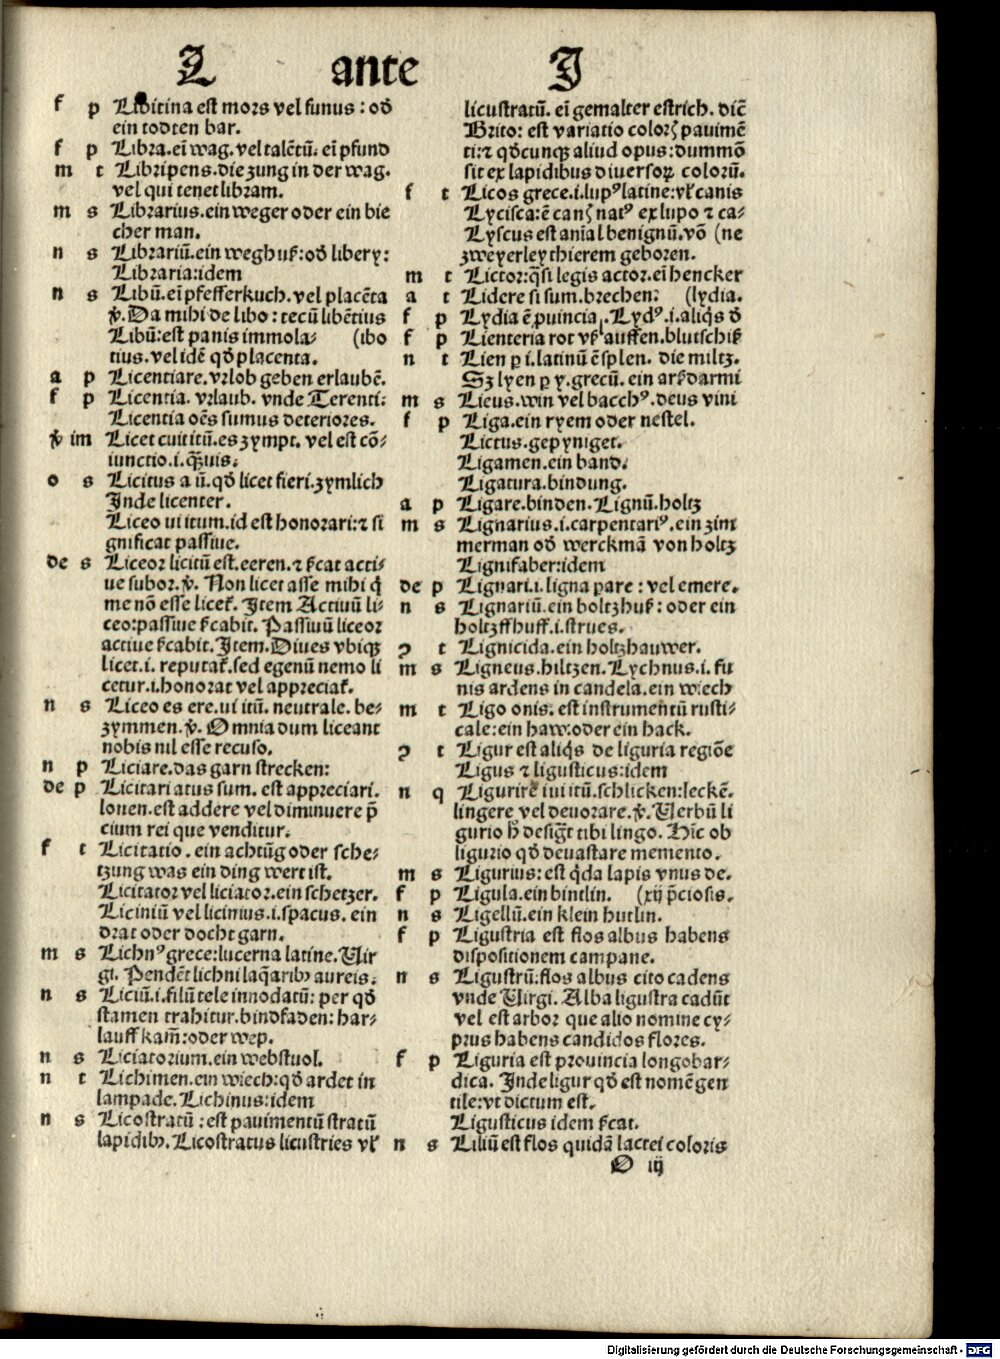 L ante J
f p Libitina est mors vel funus: od̕
ein todten bar.
f p Libra.eī wag.vel talētū.eī pfund
m t Libripens.die zung in der wag.
vel qui tenet libram.
m s Librarius.ein weger oder ein bie
cher man.
n s Librariū.ein weghuß:od̕ libery:
Libraria:idem
n s Libū.eī pfefferkuch.vel placēta
v̕.Da mihi de libo:tecū libētius
Libū:est panis immola⸗ (ibo
tius.vel idē qd̕ placenta.
a p Licentiare.vrlob geben erlaubē.
f p Licentia.vrlaub.vnde Terenti:
Licentia oēs sumus deteriores.
v̕ im Licet cuit itū.es zympt.vel est cō⸗
iunctio.i.q̄uis.
o s Licitus a ū.qd̕ licet fieri.zymlich
Inde licenter.
Liceo ui itum.id est honorari:⁊ si
gnificat passiue.
de s Liceor licitū est.eeren.⁊ ſ̕cat acti⸗
ue subor.v̕.Non licet asse mihi q̄
me nō esse licet̕.Item Actiuū li⸗
ceo:passiue ſ̕cabit.Passiuū liceor
actiue ſ̕cabit.Item.Diues vbiqꝫ
licet.i.reputat̕.sed egenū nemo li
cetur.i.honorat vel appreciat̕.
n s Liceo es ere.ui itū.neutrale.be⸗
zymmen.v̕.Omnia dum liceant
nobis nil esse recuso.
n p Liciare.das garn strecken:
de p Licitari atus sum.est appreciari.
louen.est addere vel diminuere p̄
cium rei que venditur.
f t Licitatio.ein achtūg oder sche⸗
tzung was ein ding wert ist.
Licitator vel liciator.ein schetzer.
Liciniū vel licinius.i.spacus.ein
drat oder docht garn.
m s Lichnꝰ grece:lucerna latine.Uir
gi.Pendēt lichni laq̄aribꝫ aureis.
n s Liciū.i.filū tele innodatū:per qd̕
stamen trahitur.bindfaden:har⸗
lauff kam̄:oder wep.
n s Liciatorium.ein webstuol.
n t Lichimen.ein wiech:qd̕ ardet in
lampade.Lichinus:idem
n s Licostratū:est pauimentū stratū
lapidibꝫ.Licostratus licustries vl̕
licustratū.eī gemalter estrich.dic̄
Brito:est variatio colorꝭ pauimē
ti:⁊ qd̕cunqꝫ aliud opus:dummō
sit ex lapidibus diuersoꝝ colorū.
f t Licos grece.i.lupꝰ latine:vl̕ canis
Lycisca:ē canꝭ natꝰ ex lupo ⁊ ca⸗
Lyscus est anīal benignū.vō (ne
zweyerley thierem geboren.
m t Lictor:q̄si legis actor.eī hencker
a t Lidere si sum.brechen: (lydia.
f p Lydia ē ꝓuincia.Lydꝰ.i.aliq̄s d̕
f p Lienteria rot vß lauffen.blutschiß
n t Lien p i.latinū ē splen.die miltz.
Sꝫ lyen p y.grecū.ein arßdarmi
m s Lieus.win vel bacchꝰ.deus vini
f p Liga.ein ryem oder nestel.
Lictus.gepyniget.
Ligamen.ein band.
Ligatura.bindung.
a p Ligare.binden.Lignū.holtz
m s Lignarius.i.carpentariꝰ.ein zim
merman od̕ werckmā von holtz
Lignifaber:idem
de p Lignari.i.ligna parare:vel emere.
n s Lignariū.ein holtzhuß:oder ein
holtzffhuff.i.strues.
ꝯ t Lignicida.ein holtzhauwer.
m s Ligneus.hiltzen.Lychnus.i.fu
nis ardens in candela.ein wiech
m t Ligo onis.est instrumentū rusti⸗
cale:ein haw:oder ein hack.
ꝯ t Ligur est aliq̄s de liguria regiōe
Ligus ⁊ ligusticus:idem
n q Ligurire iui itū.schlicken:leckē.
lingere vel deuorare.v̕.Uerbū li
gurio h̄ desigt̄ tibi lingo.Hīc ob
ligurio qd̕ deuastare memento.
m s Ligurius:est q̄da lapis vnus de.
f p Ligula.ein bintlin. (xij p̄ciosis.
n s Ligellū.ein klein hutlin.
f p Ligustria est flos albus habens
dispositionem campane.
n s Ligustrū:flos albus cito cadens
vnde Uirgi.Alba ligustra cadūt
vel est arbor que alio nomine cy⸗
prus habens candidos flores.
f p Liguria est prouincia longobar⸗
dica.Inde ligur qd̕ est nomē gen
tile:vt dictum est.
Ligusticus idem ſ̕cat.
n s Liliū est flos quidā lactei coloris
O iij
Digitalisierung gefördert durch die Deutsche Forschungsgemeinschaft - DFG